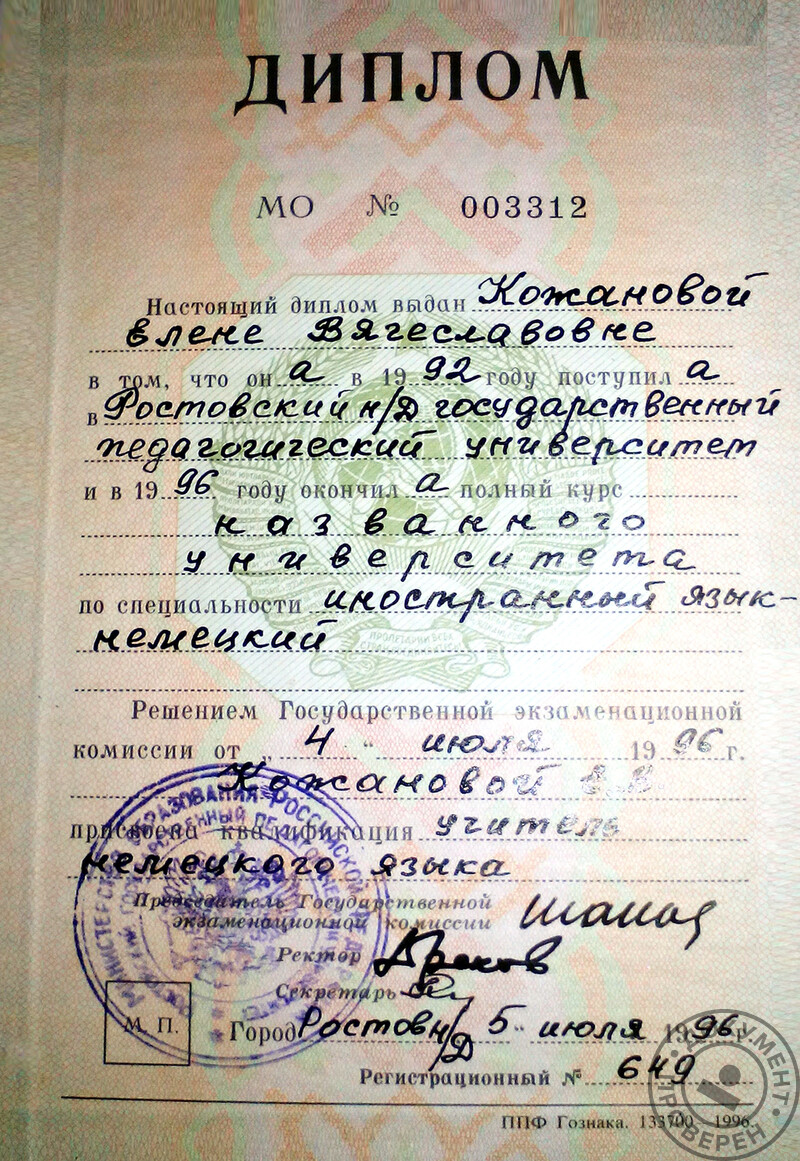 ДИПЛОМ
МО № 003312
Настоящий диплом выдан Кожановой
Елене Вячеславовне
в том, что он а в 1992 году поступил а
в Ростовский н/Д государственный
педагогический университет
и в 1996 году окончил а полный курс
названного
университета
по специальности иностранный язык-
немецкий
ПРОЛЕТАРИИ ВСЕХ
Решением Государственной экзаменационной
комиссии от „4“ июля 1996 г.
Кожановой Е.В.
присвоена квалификация учитель
немецкого языка
Председатель Государственной
экзаменационной комиссии
Ректор
Секретарь
М. П.
Город Ростов н/Д 5 " июля 1996 г.
Регистрационный № 649
ППФ Гознака. 133700 1996.
МИНИСТЕРСТВО ОБРАЗОВАНИЯ РОССИЙСКОЙ
ДОКУМЕНТ ПРОВЕРЕН